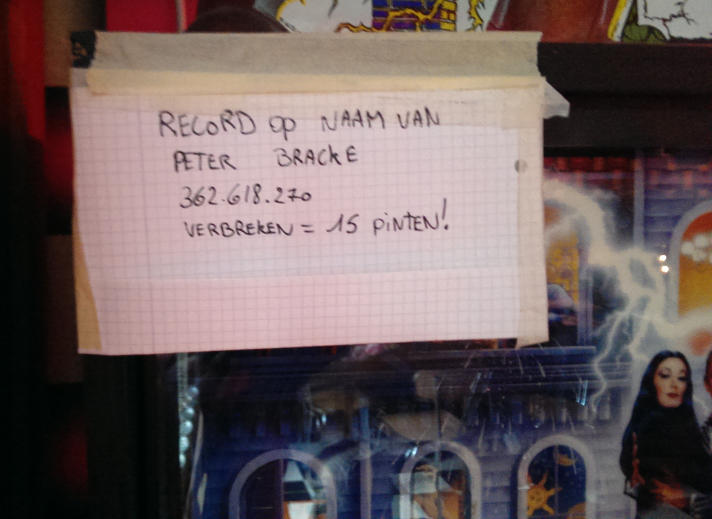 RECORD op NAAM VAN
PETER BRACKE
362.618.270
VERBREKEN = 15 pinTEN!